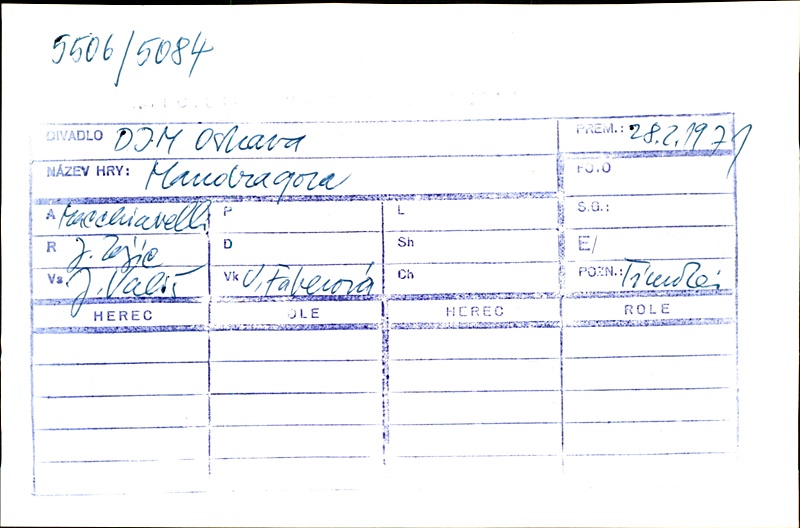 5506/5084
DIVADLO DJM Ostrava PREM.: 28.2.1971
NÁZEV HRY: Mandragora FOTO
A Macchiavelli P L S.G.:
R J. D Sh E/
Vs. J. Vališ Vk V. Faberová Ch POZN.:
HEREC ROLE HEREC ROLE